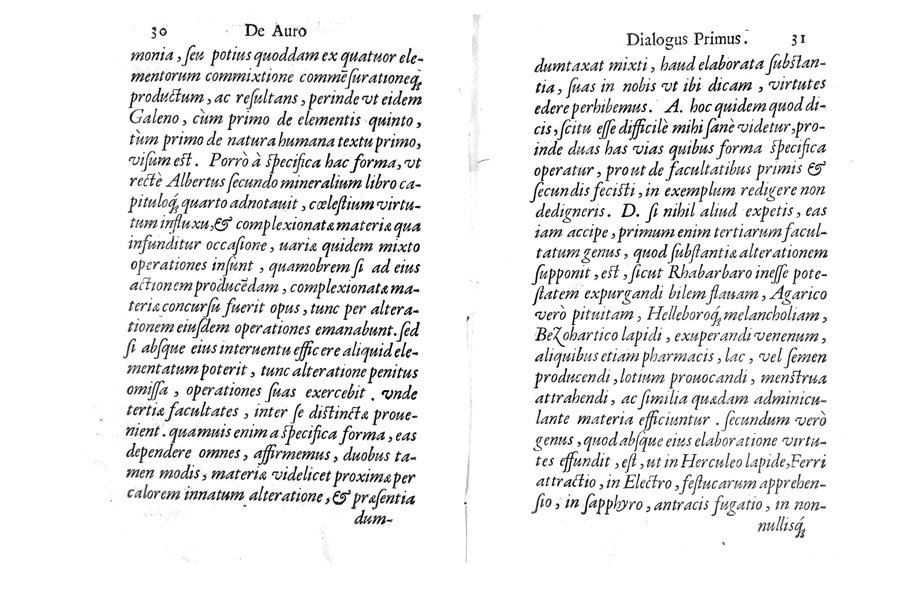 30 De Auro
monia, ſeu potius quoddam ex quatuor ele-
mentorum commixtione commẽſurationeq́;
productum, ac reſultans, perinde vt eidem
Galeno, cùm primo de elementis quinto,
tùm primo de natura humana textu primo,
viſum eſt. Porrò à ſpecifica hac forma, vt
rectè Albertus ſecundo mineralium libro ca-
pituloq́; quarto adnotauit, cœleſtium virtu-
tum influxu, & complexionatæ materiæ qua
infunditur occaſione, uariæ quidem mixto
operationes inſunt, quamobrem ſi ad eius
actionem producẽdam, complexionatæ ma-
teriæ concurſu fuerit opus, tunc per altera-
tionem eiuſdem operationes emanabunt. ſed
ſi abſque eius interuentu efficere aliquid ele-
mentatum poterit, tunc alteratione penitus
omiſſa, operationes ſuas exercebit. vnde
tertiæ facultates, inter ſe diſtinctæ proue-
nient. quamuis enim a ſpecifica forma, eas
dependere omnes, affirmemus, duobus ta-
men modis, materiæ videlicet proximæ per
calorem innatum alteratione, & præſentia
dum-
Dialogus Primus. 31
dumtaxat mixti, haud elaborata ſubſtan-
tia, ſuas in nobis vt ibi dicam, virtutes
edere perhibemus. A. hoc quidem quod di-
cis, ſcitu eſſe difficilè mihi ſanè videtur, pro-
inde duas has vias quibus forma ſpecifica
operatur, prout de facultatibus primis &
ſecundis feciſti, in exemplum redigere non
dedigneris. D. ſi nihil aliud expetis, eas
iam accipe, primum enim tertiarum facul-
tatum genus, quod ſubſtantiæ alterationem
ſupponit, eſt, ſicut Rhabarbaro ineſſe pote-
ſtatem expurgandi bilem flauam, Agarico
verò pituitam, Helleboroq́; melancholiam,
BeZohartico lapidi, exuperandi venenum,
aliquibus etiam pharmacis, lac, vel ſemen
producendi, lotium prouocandi, menſtrua
attrahendi, ac ſimilia quædam adminicu-
lante materia efficiuntur. ſecundum verò
genus, quod abſque eius elaboratione virtu-
tes effundit, eſt, ut in Herculeo lapide, Ferri
attractio, in Electro, feſtucarum apprehen-
ſio, in ſapphyro, antracis fugatio, in non-
nulliſq́;